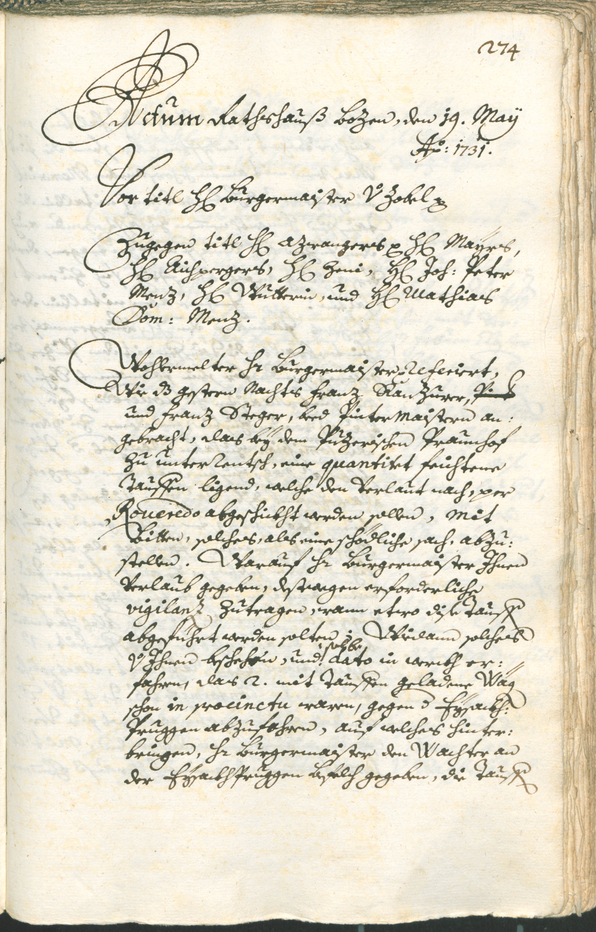 274
Actum Rathshauß Bozen, den 19. May
Ao: 1731.
Vor titl H: Burgermaister v Zobel
Zugegen titl H: Azwangers H: Mayrs,
H: Aichpergers, H: Zeni, H: Joh: Peter
Menz, H: Wutterin, und H: Mathias
Dom: Menz.
Wohlermelter Hr Burgermaister referiert,
Wie dz gestern Nachts Franz Kandzurer,
und Franz Steger, bed Pinter Maistern an:
gebracht, das bey dem Pizerischen Praunhof
zu unter Rentsch, eine quantitet feichtene
Tauffen ligend, welche den Verlaut nach, per
Roveredo abgeschickt werden sollen, mit
bitten, solches, als eine schödliche sach, abzu:
stellen. Warauf Hr Burgermaister Ihnen
Verlaub gegeben, destwegen erforderliche
vigilanz zutragen, wann etwo dise Tauffen
abgeführt werden solten. Wie dann solches
v Ihnen beschehen, und dato in werkh er:
fahren, das 2. mit Tauffen geladene Wäg
schon in procinctu waren, gegen d Eysackh:
Pruggen abzufahren, auf welches hinter:
bringen, Hr Burgermaister den Wachter an
der Eysackhpruggen befelch gegeben, die Tauffen